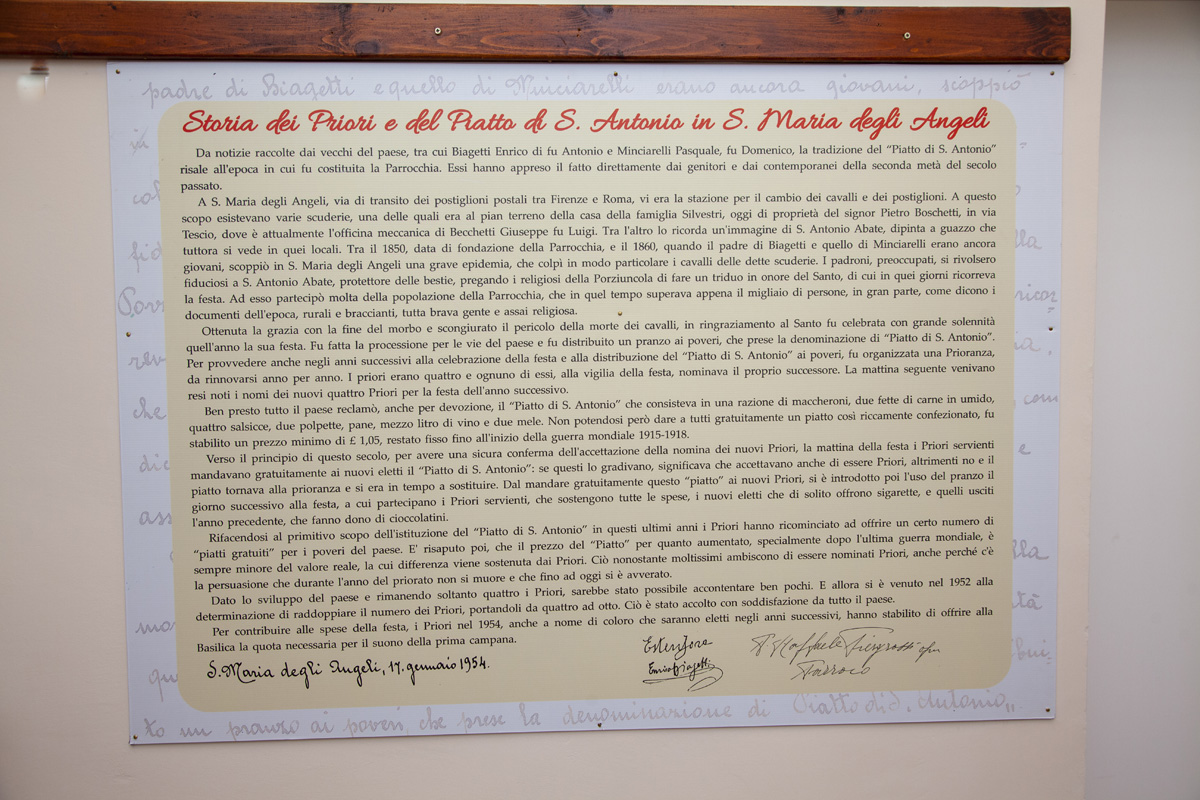 padre di Biagetti e quello di Minciarelli erano ancora giovani, scoppiò
Storia dei Priori e del Piatto di S. Antonio in S. Maria degli Angeli
Da notizie raccolte dai vecchi del paese, tra cui Biagetti Enrico di fu Antonio e Minciarelli Pasquale, fu Domenico, la tradizione del "Piatto di S. Antonio"
risale all'epoca in cui fu costituita la Parrocchia. Essi hanno appreso il fatto direttamente dai genitori e dai contemporanei della seconda metà del secolo
passato.
A S. Maria degli Angeli, via di transito dei postiglioni postali tra Firenze e Roma, vi era la stazione per il cambio dei cavalli e dei postiglioni. A questo
scopo esistevano varie scuderie, una delle quali era al pian terreno della casa della famiglia Silvestri, oggi di proprietà del signor Pietro Boschetti, in via
Tescio, dove è attualmente l'officina meccanica di Becchetti Giuseppe fu Luigi. Tra l'altro lo ricorda un'immagine di S. Antonio Abate, dipinta a guazzo che
tuttora si vede in quei locali. Tra il 1850, data di fondazione della Parrocchia, e il 1860, quando il padre di Biagetti e quello di Minciarelli erano ancora
giovani, scoppiò in S. Maria degli Angeli una grave epidemia, che colpì in modo particolare i cavalli delle dette scuderie. I padroni, preoccupati, si rivolsero
fiduciosi a S. Antonio Abate, protettore delle bestie, pregando i religiosi della Porziuncola di fare un triduo in onore del Santo, di cui in quei giorni ricorreva
la festa. Ad esso partecipò molta della popolazione della Parrocchia, che in quel tempo superava appena il migliaio di persone, in gran parte, come dicono i
documenti dell'epoca, rurali e braccianti, tutta brava gente e assai religiosa.
Ottenuta la grazia con la fine del morbo e scongiurato il pericolo della morte dei cavalli, in ringraziamento al Santo fu celebrata con grande solennità
quell'anno la sua festa. Fu fatta la processione per le vie del paese e fu distribuito un pranzo ai poveri, che prese la denominazione di "Piatto di S. Antonio".
Per provvedere anche negli anni successivi alla celebrazione della festa e alla distribuzione del "Piatto di S. Antonio" ai poveri, fu organizzata una Prioranza,
da rinnovarsi anno per anno. I priori erano quattro e ognuno di essi, alla vigilia della festa, nominava il proprio successore. La mattina seguente venivano
resi noti i nomi dei nuovi quattro Priori per la festa dell'anno successivo.
Ben presto tutto il paese reclamò, anche per devozione, il "Piatto di S. Antonio" che consisteva in una razione di maccheroni, due fette di carne in umido,
quattro salsicce, due polpette, pane, mezzo litro di vino e due mele. Non potendosi però dare a tutti gratuitamente un piatto così riccamente confezionato, fu
stabilito un prezzo minimo di £ 1,05, restato fisso fino all'inizio della guerra mondiale 1915-1918.
Verso il principio di questo secolo, per avere una sicura conferma dell'accettazione della nomina dei nuovi Priori, la mattina della festa i Priori servienti
mandavano gratuitamente ai nuovi eletti il "Piatto di S. Antonio": se questi lo gradivano, significava che accettavano anche di essere Priori, altrimenti no e il
piatto tornava alla prioranza e si era in tempo a sostituire. Dal mandare gratuitamente questo "piatto" ai nuovi Priori, si è introdotto poi l'uso del pranzo il
giorno successivo alla festa, a cui partecipano i Priori servienti, che sostengono tutte le spese, i nuovi eletti che di solito offrono sigarette, e quelli usciti
l'anno precedente, che fanno dono di cioccolatini.
Rifacendosi al primitivo scopo dell'istituzione del "Piatto di S. Antonio" in questi ultimi anni i Priori hanno ricominciato ad offrire un certo numero di
"piatti gratuiti" per i poveri del paese. E' risaputo poi, che il prezzo del "Piatto" per quanto aumentato, specialmente dopo l'ultima guerra mondiale, è
sempre minore del valore reale, la cui differenza viene sostenuta dai Priori. Ciò nonostante moltissimi ambiscono di essere nominati Priori, anche perché c'è
la persuasione che durante l'anno del priorato non si muore e che fino ad oggi si è avverato.
Dato lo sviluppo del paese e rimanendo soltanto quattro i Priori, sarebbe stato possibile accontentare ben pochi. E allora si è venuto nel 1952 alla
determinazione di raddoppiare il numero dei Priori, portandoli da quattro ad otto. Ciò è stato accolto con soddisfazione da tutto il paese.
Per contribuire alle spese della festa, i Priori nel 1954, anche a nome di coloro che saranno eletti negli anni successivi, hanno stabilito di offrire alla
Basilica la quota necessaria per il suono della prima campana.
S. Maria degli Angeli, 17. gennaio 1954.
Estensore
Enrico Biagetti
Raffaele Piergrossi
Parroco
to un pranzo ai poveri, che prese la denominazione di Piatto di S. Antonio,,